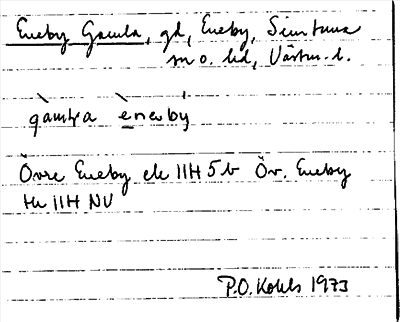 Eneby Gamla, gd, Eneby, Simtuna
sn o. hd, Västm. l.
gàmḷa ènebý
Övre Eneby ek 11H 5b Öv. Eneby
tk 11H NV
P.O. Kohls 1973